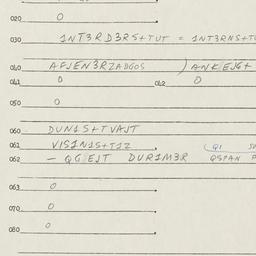 020 0
030 1NT3RD3RS+TUT = 1NT3RNS+T
040 AFJEN3RZADGOS ) ANKEJG+
041 0 042 0
050 0
060 DUN1S+TVAJT
061 VIS1N1S+T1Z (Q1
062 - QGEJT DUR1M3R QSPAN
063 0
070 0
080 0